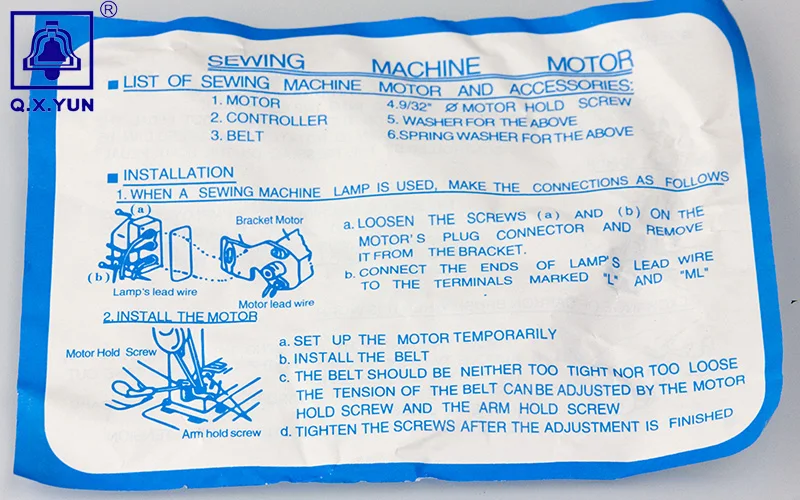 ®
Q.X.YUN
SEWING MACHINE MOTOR
■ LIST OF SEWING MACHINE MOTOR AND ACCESSORIES:
1. MOTOR
2. CONTROLLER
3. BELT
4.9/32" Ø MOTOR HOLD SCREW
5. WASHER FOR THE ABOVE
6.SPRING WASHER FOR THE ABOVE
■ INSTALLATION
1. WHEN A SEWING MACHINE LAMP IS USED, MAKE THE CONNECTIONS AS FOLLOWS
(a)
Bracket Motor
(b)
Lamp's lead wire
Motor lead wire
a. LOOSEN THE SCREWS (a) AND (b) ON THE
MOTOR'S PLUG CONNECTOR AND REMOVE
IT FROM THE BRACKET.
b. CONNECT THE ENDS OF LAMP'S LEAD WIRE
TO THE TERMINALS MARKED "L" AND "ML"
2. INSTALL THE MOTOR
Motor Hold Screw
Arm hold screw
a. SET UP THE MOTOR TEMPORARILY
b. INSTALL THE BELT
c. THE BELT SHOULD BE NEITHER TOO TIGHT NOR TOO LOOSE
THE TENSION OF THE BELT CAN BE ADJUSTED BY THE MOTOR
HOLD SCREW AND THE ARM HOLD SCREW
d. TIGHTEN THE SCREWS AFTER THE ADJUSTMENT IS FINISHED